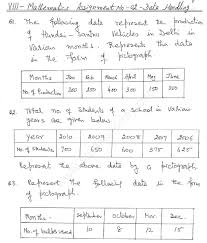 VIII - Mathematics Assignment No-02 - Data Handling
01. The following data represent the production
of Hundai - Santro Vehicles in Delhi in
Various months. Represents the data
in the form of pictograph
Months Jan Feb March April May June
No. of Production 200 400 300 150 250
02. Total no. of Students of a school in various
years are given below
Year 2010 2009 2008 2007 2006
No. of Students 700 650 575 625
Represent the above data by a pictograph.
03. Represent the following data in the form
of pictograph.
Months - September October Nov. Dec.
No. of bulbs used 10 8 12 15